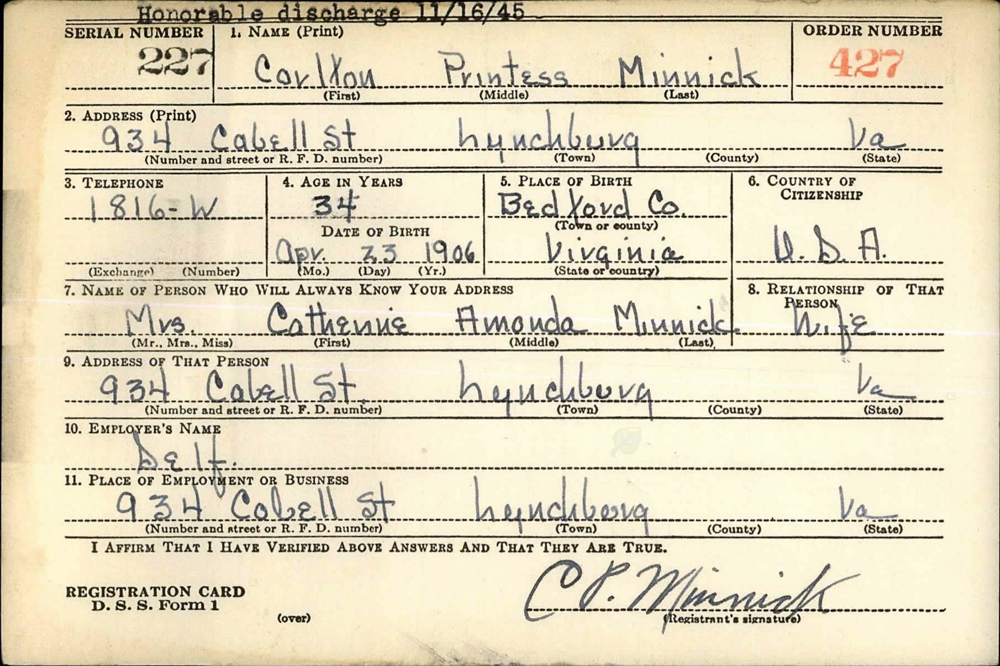 Honorable discharge 11/16/45
SERIAL NUMBER 1. NAME (Print) ORDER NUMBER
227 Carlton Printess Minnick 427
(First) (Middle) (Last)
2. ADDRESS (Print)
934 Cabell St Lynchburg Va
(Number and street or R. F. D. number) (Town) (County) (State)
3. TELEPHONE 4. AGE IN YEARS 5. PLACE OF BIRTH 6. COUNTRY OF CITIZENSHIP
1816-W 34 Bedford Co.
(Town or county)
DATE OF BIRTH
Apr. 23 1906 Virginia U.S.A.
(Exchange) (Number) (Mo.) (Day) (Yr.) (State or country)
7. NAME OF PERSON WHO WILL ALWAYS KNOW YOUR ADDRESS 8. RELATIONSHIP OF THAT PERSON
Mrs. Catherine Amanda Minnick Wife
(Mr., Mrs., Miss) (First) (Middle) (Last)
9. ADDRESS OF THAT PERSON
934 Cabell St. Lynchburg Va
(Number and street or R. F. D. number) (Town) (County) (State)
10. EMPLOYER'S NAME
Self.
11. PLACE OF EMPLOYMENT OR BUSINESS
934 Cabell St Lynchburg Va
(Number and street or R. F. D. number) (Town) (County) (State)
I AFFIRM THAT I HAVE VERIFIED ABOVE ANSWERS AND THAT THEY ARE TRUE.
REGISTRATION CARD
D. S. S. Form 1
(over)
C P. Minnick
(Registrant's signature)